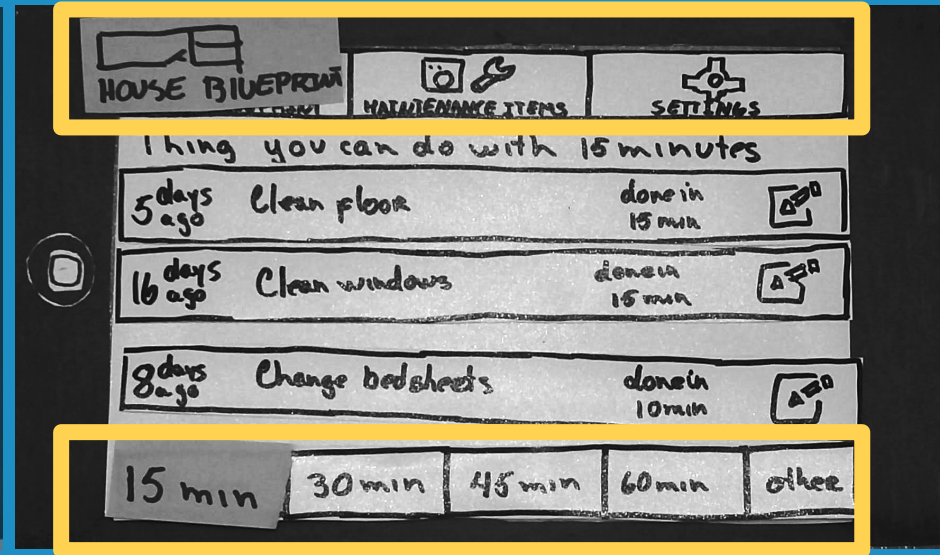 HOUSE BLUEPRINT
MAINTENANCE ITEMS
SETTINGS
Thing you can do with 15 minutes
5 days ago Clean floor done in 15 min
16 days ago Clean windows done in 15 min
8 days ago Change bedsheets done in 10 min
15 min 30 min 45 min 60 min other